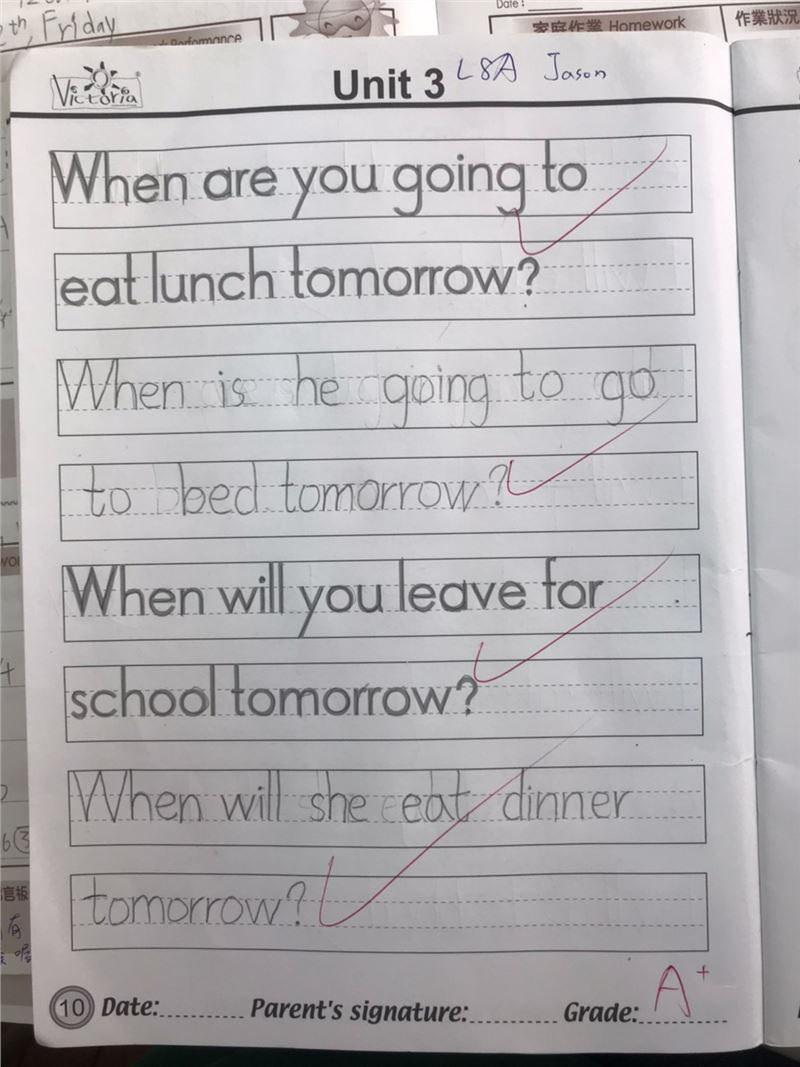 th, Friday
Performance
Date:
家庭作業 Homework
作業狀況
Victoria
Unit 3 L8A Jason
When are you going to
eat lunch tomorrow?
When is he going to go
to bed tomorrow?
When will you leave for
school tomorrow?
When will she eat dinner
tomorrow?
10 Date: Parent's signature: Grade: A+